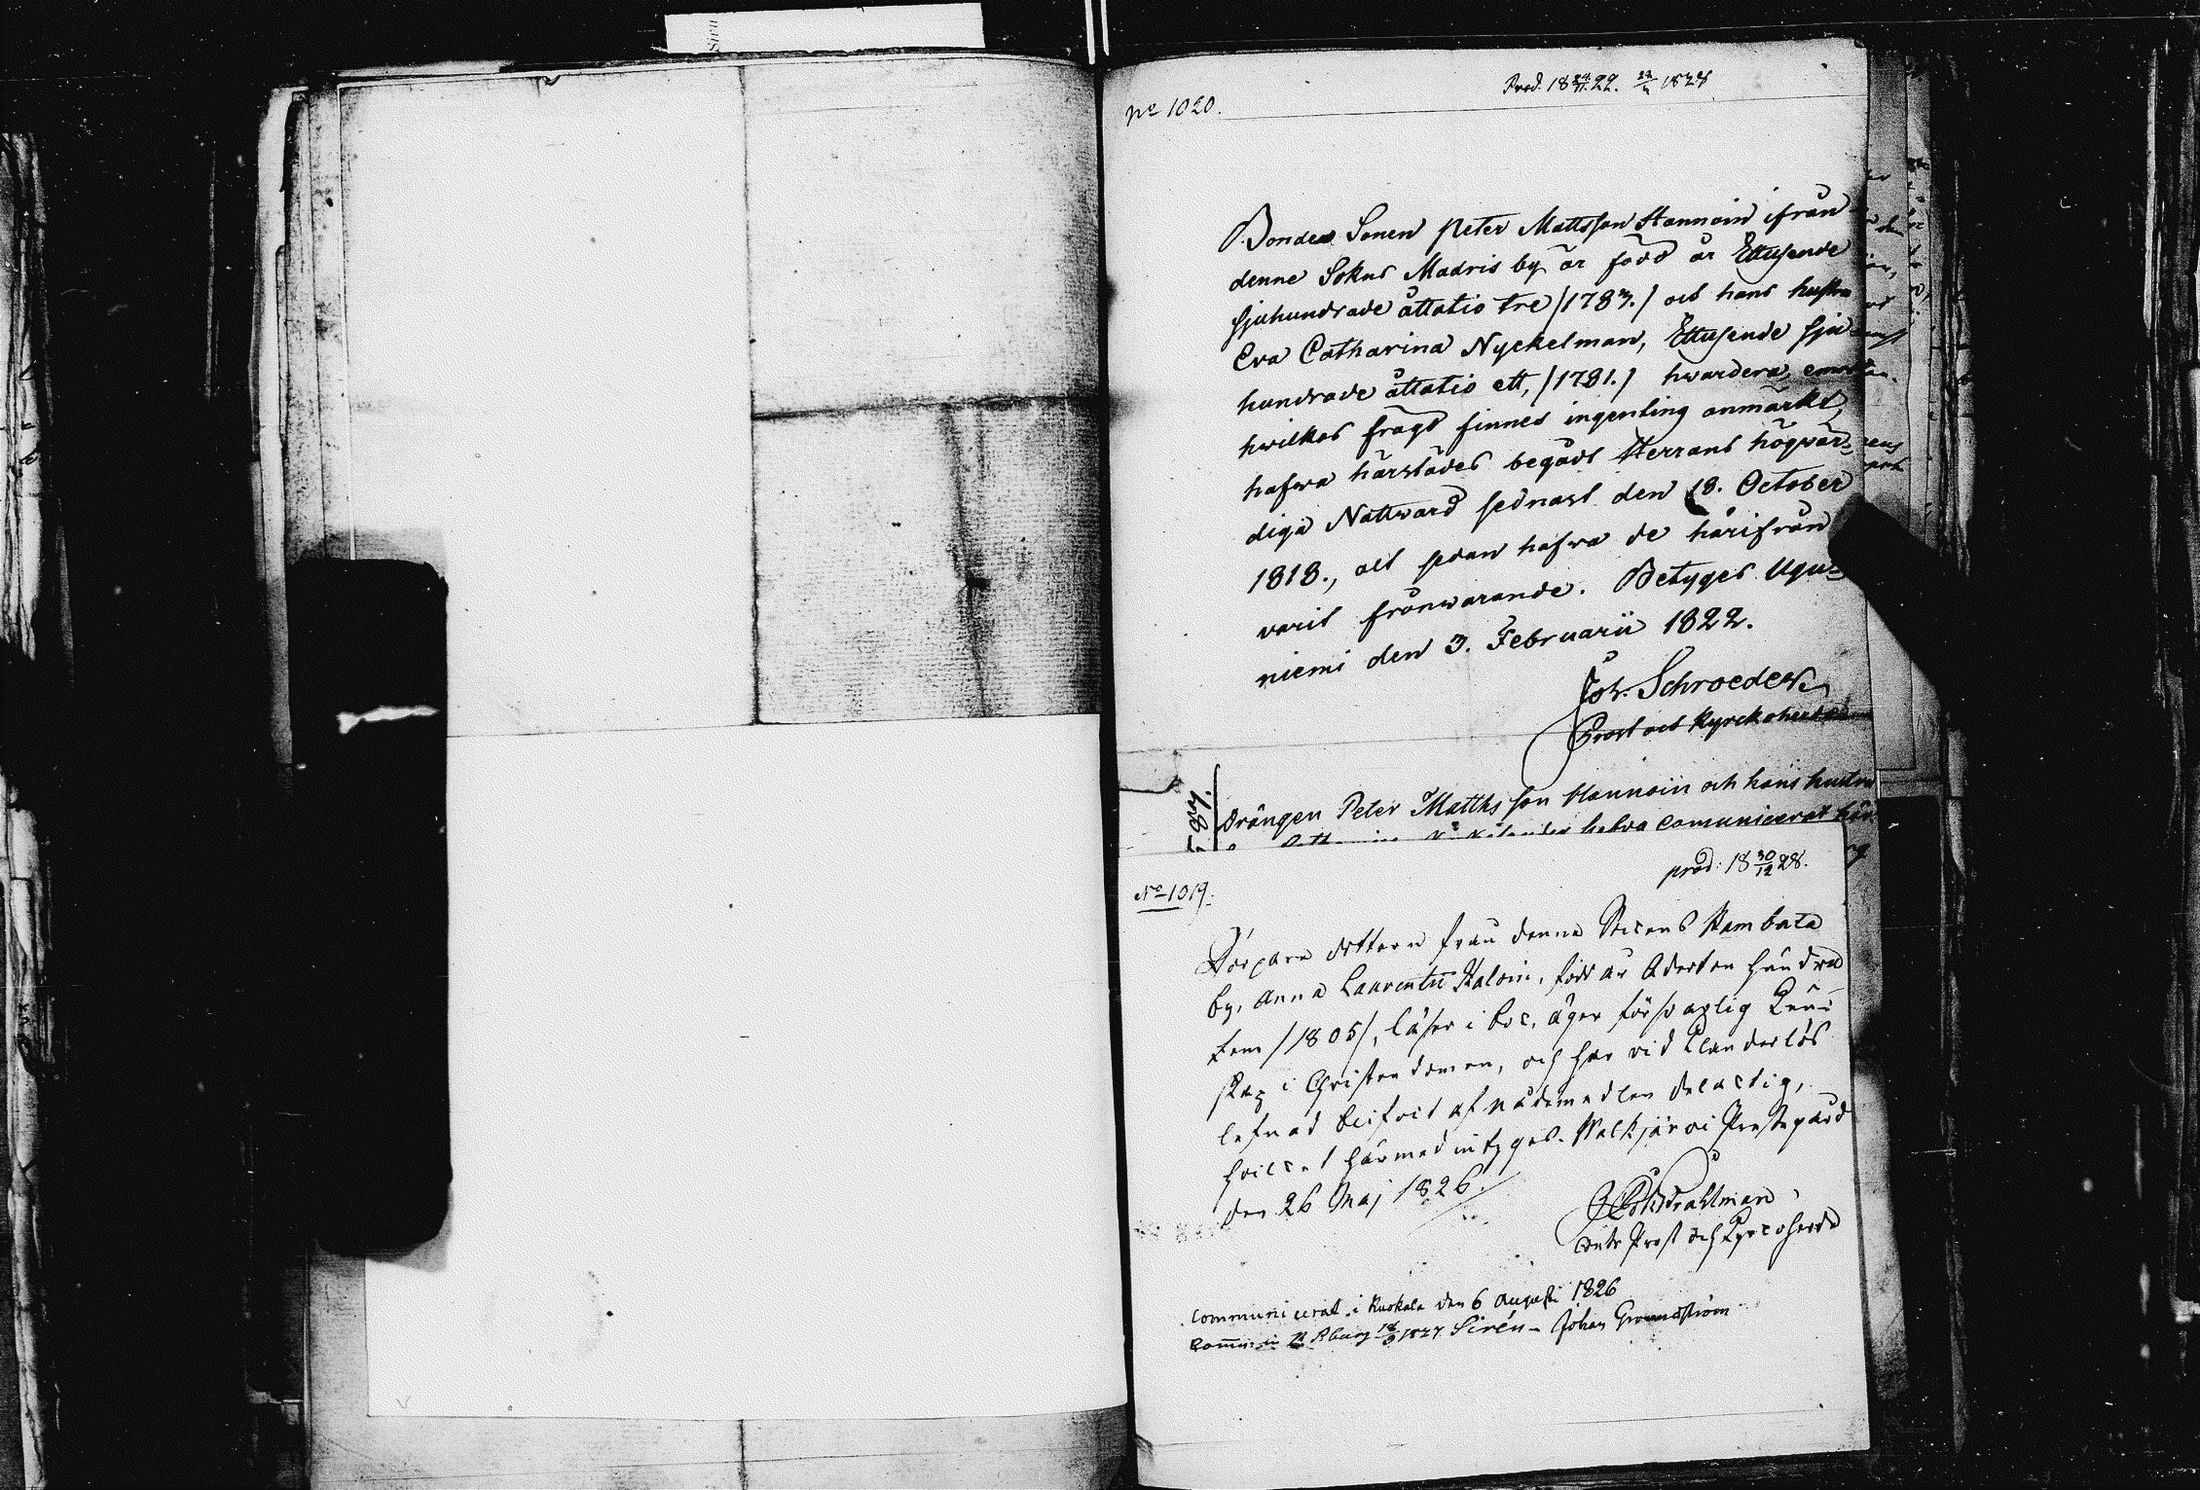 No 1020.
Prod. 18 24/11 22. 1828
Bonde Sonen Peter Mattsson Hannoin ifrån
denne Sokns Madris by är född år Ettusende
sjuhundrade åttatio tre /1783./ och hans hustru
Eva Catharina Nyckelman, Ettusende sju
hundrade åttatio ett, /1781./ hwardera, emot
hwilkas frägd finnes ingenting anmärkt,
hafwa härstädes begådt Herrans högwär-
diga Nattward sednast den 18. October
1818., och sedan hafwa de härifrån
varit frånwarande. Betyges Ugu-
niemi den 3. Februarii 1822.
Joh. Schroeder
Prost och Kyrckoherde
Drängen Peter Matths son Hannoin och hans hustru
hafva comunicerat här
No 1019.
prod: 18 30/12 28.
Torpare dottern från denna Sockens Kambala
by, Anna Laurentii Haloin, född år Adertonhundrad
fem /1805/, läser i boc, äger försvarlig Kun-
skap i Christendomen, och har vid klanderlös
lefnad blifvit af nådemedlen delactig,
hvilcet härmed intygas. Walkjärvi Prestegård
den 26 Maj 1826.
Contr Prost och Kyrcoherde
Communicerat i Kuokala den 6 Augusti 1826
Commun: i 18/9 1827 Sirén Johan Grundström